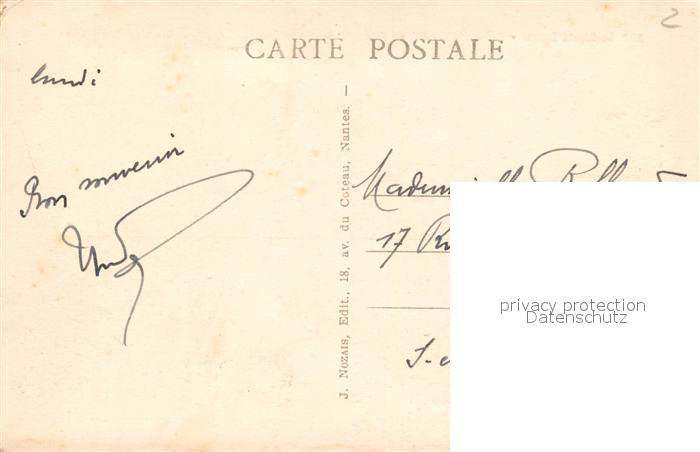 2
CARTE POSTALE
lundi
Bon souvenir
J. NOZAIS, Edit., 18, av. du Coteau, Nantes. —
Mademoiselle
17
privacy protection
Datenschutz